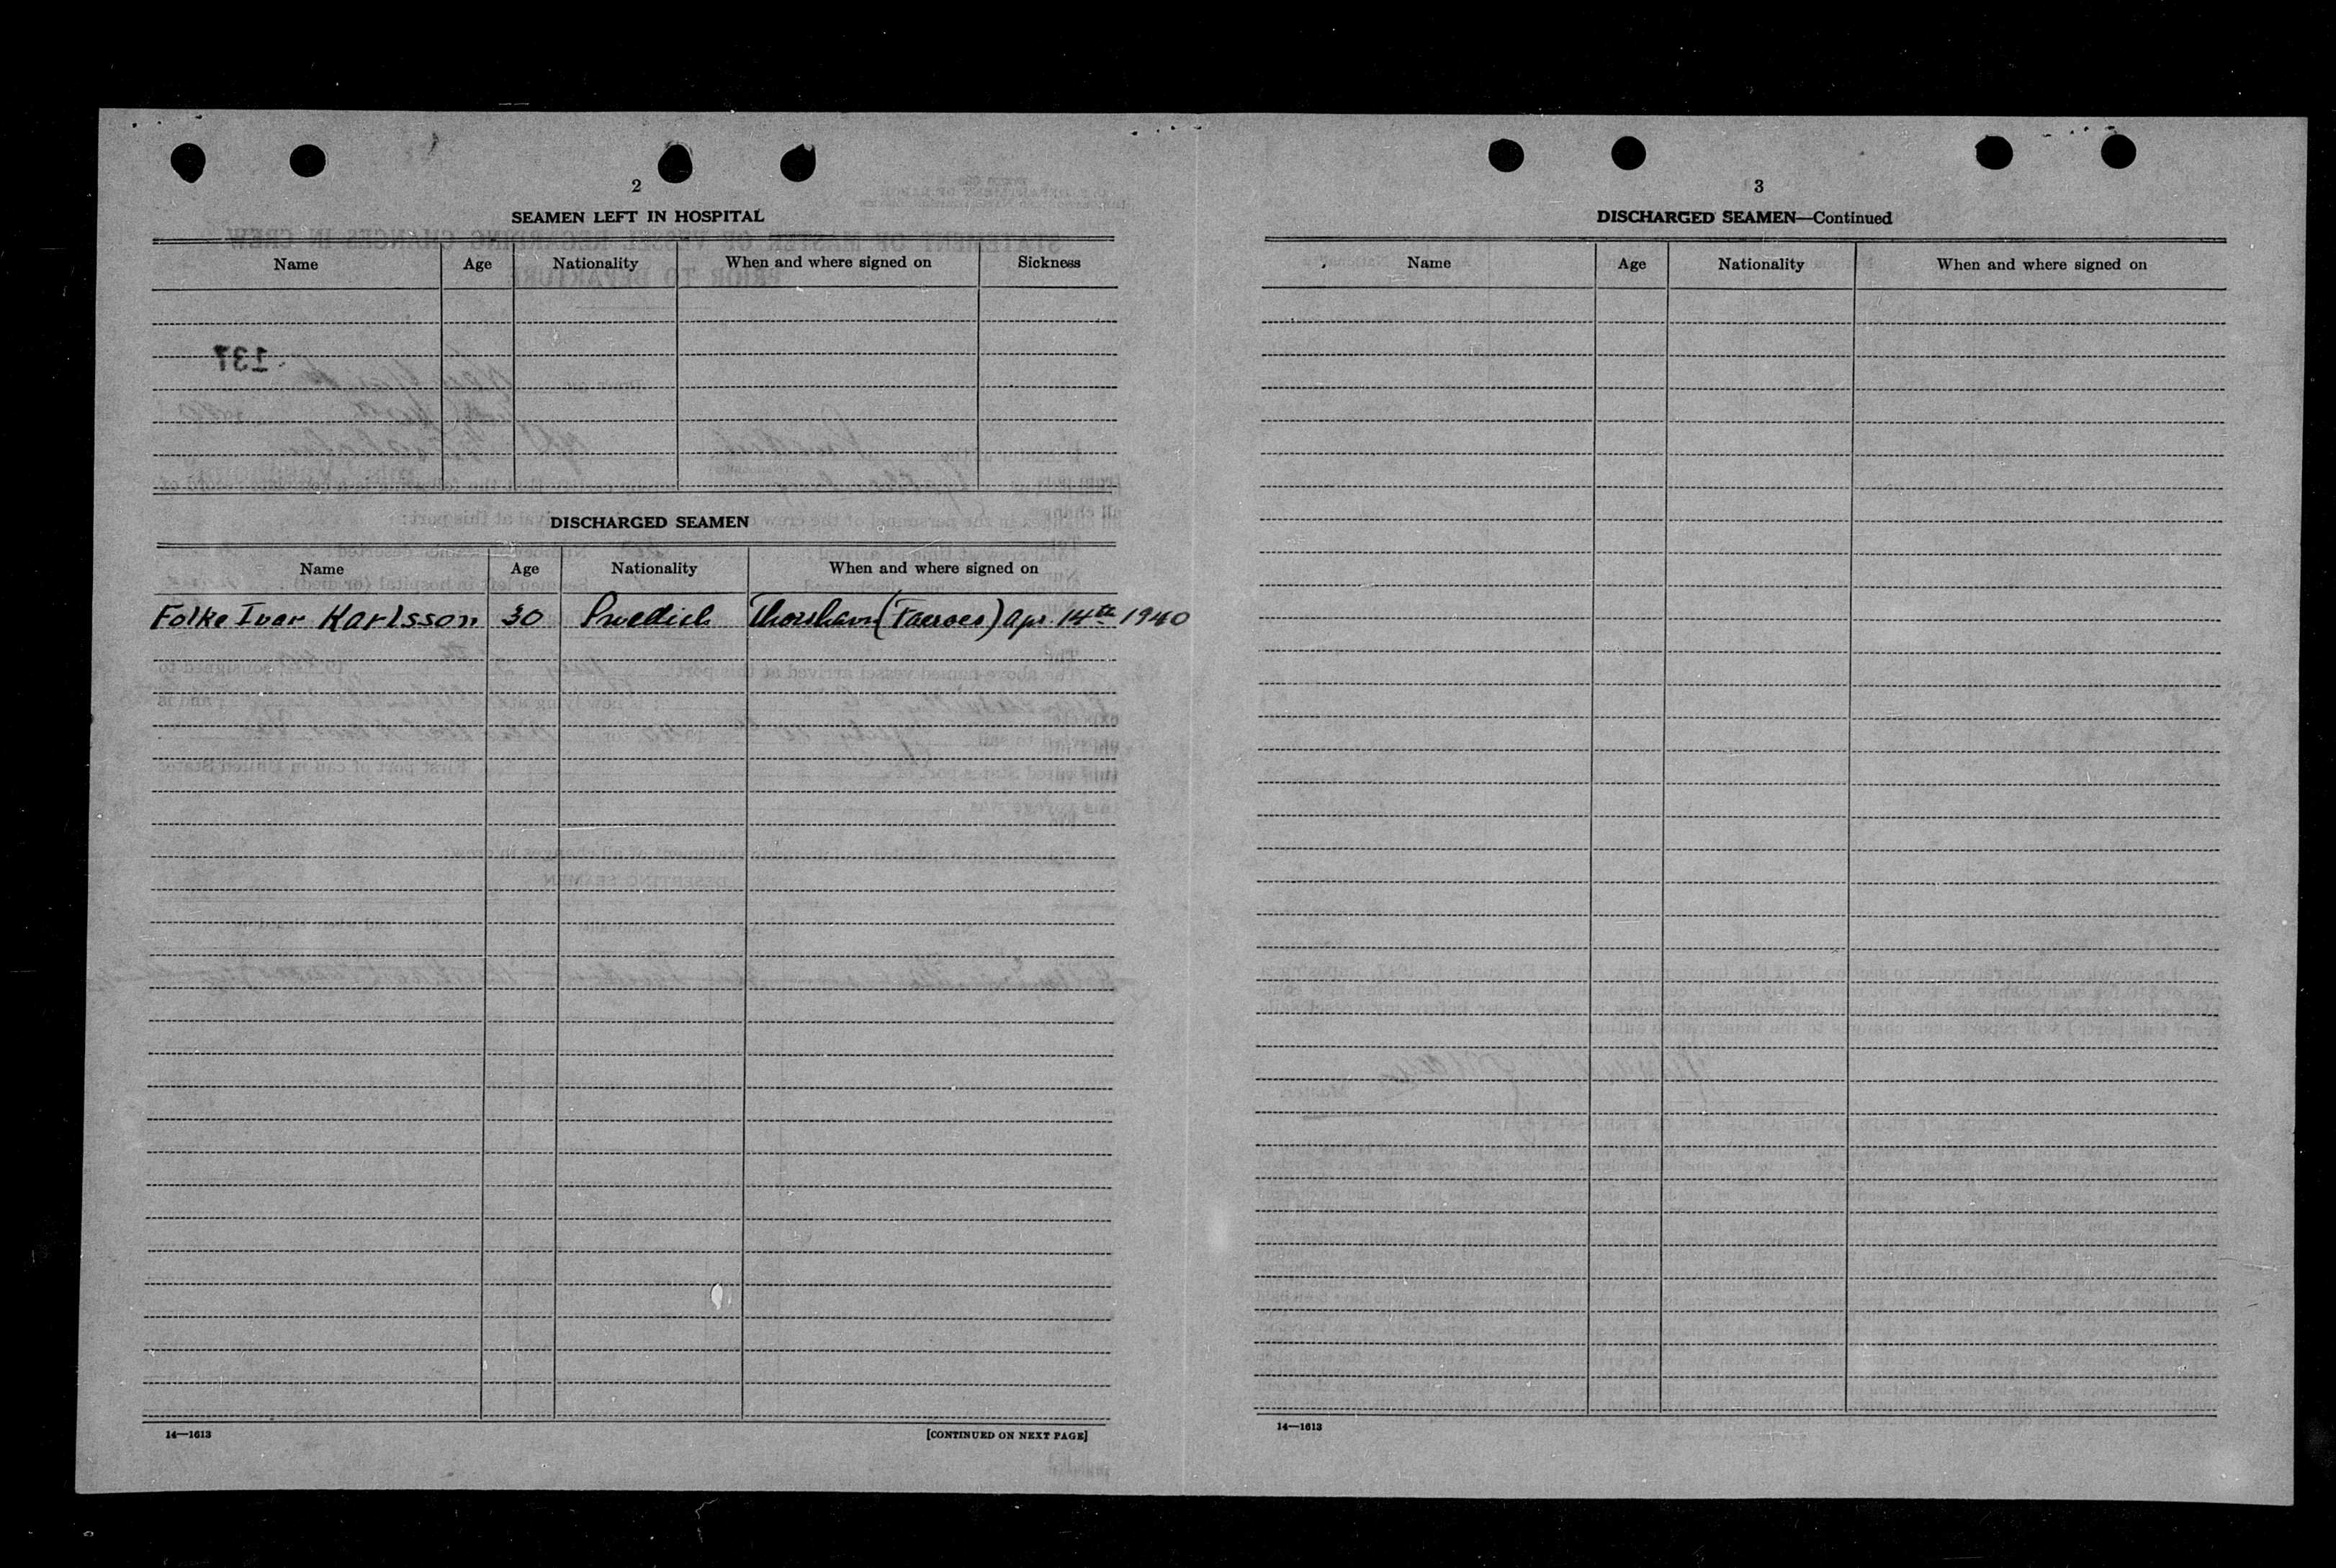 2
SEAMEN LEFT IN HOSPITAL
Name Age Nationality When and where signed on Sickness
137
DISCHARGED SEAMEN
Name Age Nationality When and where signed on
Folke Ivar Karlsson 30 Swedish Thorshavn (Faeroes) Apr. 14th 1940
14—1613 [CONTINUED ON NEXT PAGE]
3
DISCHARGED SEAMEN—Continued
Name Age Nationality When and where signed on
14—1613